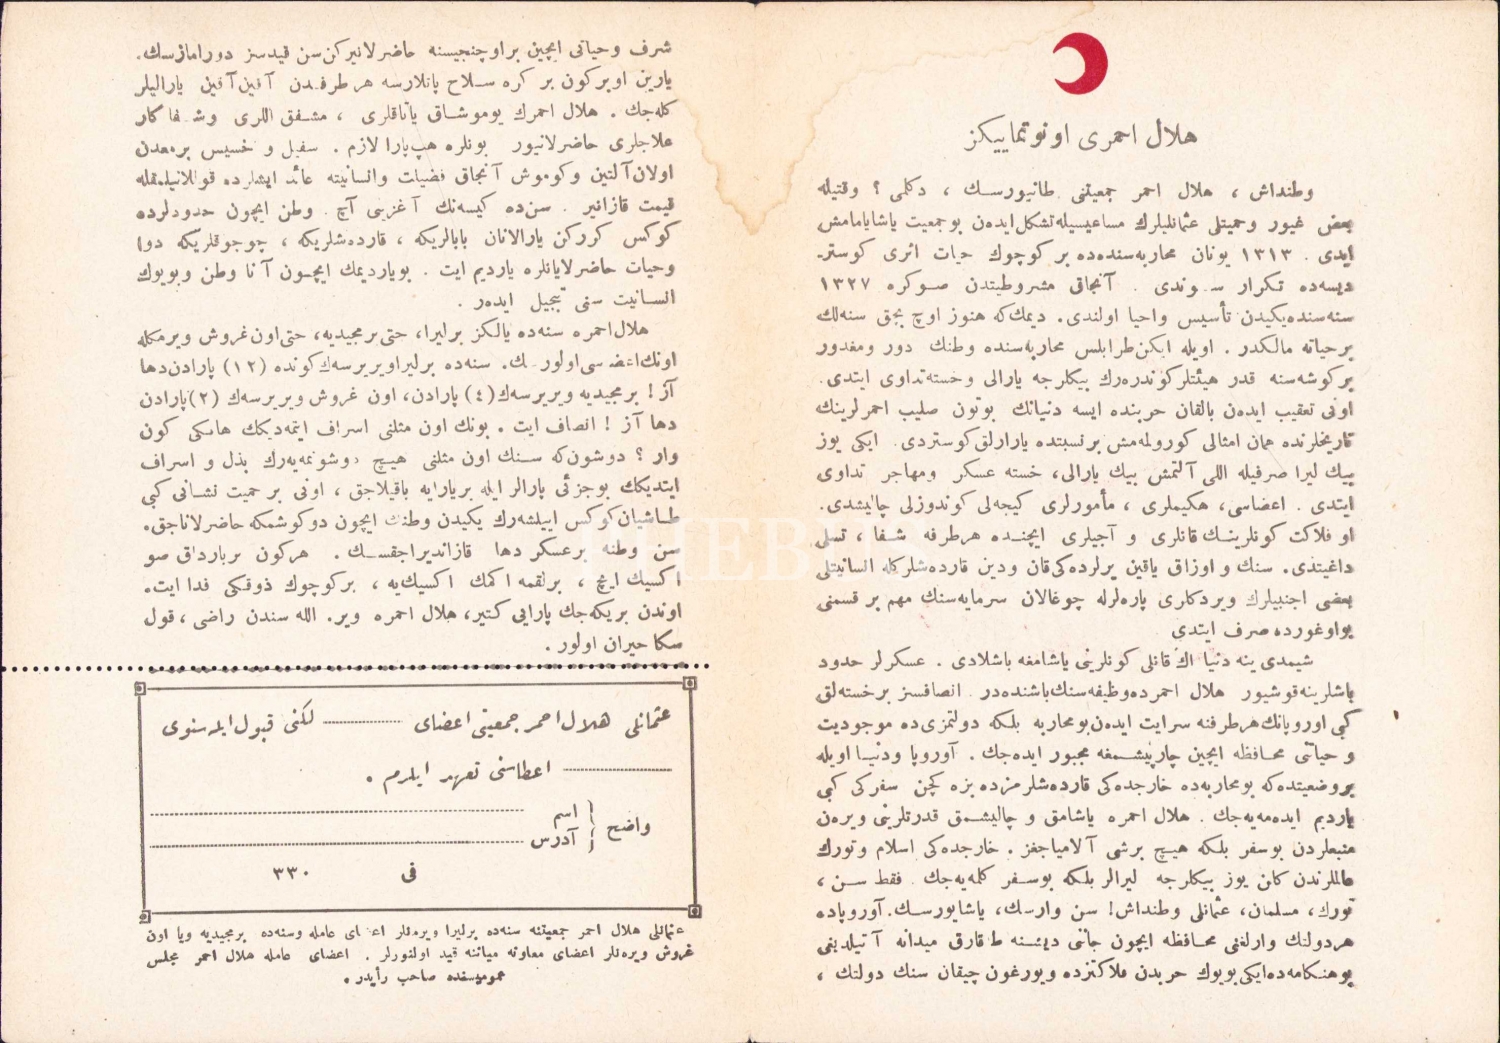 هلال احمری اونوتمایيکز
وطنداش ، هلال احمر جمعیتنی طانیورسك ، دکلمی ؟ وقتیله
بعض غیور وحمیتلی عثمانلیلرك مساعیسیله تشکل ایده‌ن بو جمعیت یاشایامامش
ایدی . ۱۳۱۳ یونان محاربه‌سنده‌ده بر کوچوك حیات اثری کوستر-
دیسه‌ده تکرار سوندی . آنجاق مشروطیتدن صوکره ۱۳۲۷
سنه‌سنده یکیدن تأسیس واحیا اولندی. دیمك که هنوز اوچ بچق سنه‌لك
بر حیاته مالکدر . اویله ایکن طرابلس محاربه‌سنده وطنك دور ومغدور
بر کوشه‌سنه قدر هیئتلر کوندره‌رك بیکلرجه یارالی وخسته تداوی ایتدی.
اونی تعقیب ایده‌ن بالقان حربنده ایسه دنیانك بوتون صلیب احمرلرینك
تاریخلرنده همان امثالی کورولمه‌مش بر نسبتده یارارلق کوستردی. ایکی یوز
بیك لیرا صرفیله اللی آلتمش بیك یارالی، خسته عسکر ومهاجر تداوی
ایتدی . اعضاسی، هکیملری ، مأمورلری کیجه‌لی کوندوزلی چالیشدی.
او فلاکت کونلرینك قانلری و آجیلری ایچنده هرطرفه شفا ، تسلی
داغیتدی. سنك و اوزاق یاقین یرلرده‌کی قان ودین قارده‌شلرکله انسانیتلی
بعضی اجنبیلرك ویردکلری پاره‌لرله چوغالان سرمایه‌سنك مهم بر قسمنی
بو اوغورده صرف ایتدی
شیمدی ینه دنیا اك قانلی کونلرینی یاشامغه باشلادی . عسکرلر حدود
باشلرینه قوشیور هلال احمرده وظیفه‌سنك باشنده‌در. انصافسز بر خسته‌لق
کبی اوروپانك هرطرفنه سرایت ایده‌ن بو محاربه بلکه دولتمزی‌ده موجودیت
و حیاتنی محافظه ایچین چارپیشمغه مجبور ایده‌جك . آوروپا ودنیا اویله
بر وضعیتده‌که بو محاربه‌ده خارجده‌کی قارده‌شلرمزده بزه کچن سفرکی کبی
یاردیم ایده‌مه‌یه‌جك . هلال احمره یاشامق و چالیشمق قدرتلرینی ویره‌ن
منبعلردن بو سفر بلکه هیچ برشی آلامیاجغز . خارجده‌کی اسلام وتورك
عالملرندن کلن یوز بیکلرجه لیرالر بلکه بو سفر کلمه‌یه‌جك . فقط سن ،
تورك، مسلمان، عثمانلی وطنداش! سن وارسك، یاشایورسك. آوروپاده
هر دولتك وارلغنی محافظه ایچون جاننی دیشنه طاقارق میدانه آتیلدیغی
بو هنکامه‌ده ایکی بویوك حربدن فلاکتزده ویورغون چیقان سنك دولتك ،
شرف وحیاتی ایچین بر اوچنجیسنه حاضرلانیرکن سن قیدسز دورامازسك.
یارین اوبرکون بر کره سلاح پاتلارسه هرطرفدن آقین آقین یارالیلر
کله‌جك . هلال احمرك یوموشاق یاتاقلری ، مشفق اللری وشفاکار
علاجلری حاضرلانیور بونلره هپ پارا لازم . سفیل و خسیس برمعدن
اولان آلتین وکوموش آنجاق فضیلت وانسانیته عائد ایشلرده قوللانیلمقله
قیمت قازانیر . سن‌ده کیسه‌نك آغزینی آچ . وطن ایچون حدودلرده
کوکس کررکن یارالانان بابالریکه ، قارده‌شلریکه ، چوجوقلریکه دوا
وحیات حاضرلایانلره یاردیم ایت . بو یاردیمك ایچون آنا وطن وبویوك
انسانیت سنی تبجیل ایده‌ر .
هلال احمره سنه‌ده یالکز بر لیرا، حتی بر مجیدیه، حتی اون غروش ویرمکله
اونك اعضاسی اولورسك. سنه‌ده بر لیرا ویریرسه‌ك کونده (۱۲) پارادن دها
آز! بر مجیدیه ویریرسه‌ك (٤) پارادن، اون غروش ویریرسه‌ك (۲) پارادن
دها آز ! انصاف ایت . بونك اون مثلنی اسراف ایتمه‌دیکك هانکی کون
وار ؟ دوشون که سنك اون مثلنی هیچ دوشونمه‌یه‌رك بذل و اسراف
ایتدیکك بو جزئی پارالر ایله بر یارایه باقیلاجق ، اونی بر حمیت نشانی کبی
طاشیان کوکس اییلشه‌رك یکیدن وطنك ایچون دوکوشمکه حاضرلاناجق.
سن وطنه بر عسکر دها قازاندیراجقسك . هرکون بربارداق صو
اکسیك ایچ ، برلقمه اکمك اکسیك یه ، بر کوچوك ذوقکی فدا ایت.
اوندن بریکه‌جك پارایی کتیر، هلال احمره ویر. الله سندن راضی ، قول
سکا حیران اولور .
عثمانلی هلال احمر جمعیتی اعضای ............ لکنی قبول ایله سنوی
............ اعطاسنی تعهد ایلرم .
واضح { اسم ............
آدرس ............
فی ۳۳۰
عثمانلی هلال احمر جمعیتنه سنه‌ده برلیرا ویره‌نلر اعضای عامله وسنه‌ده برمجیدیه ویا اون
غروش ویره‌نلر اعضای معاونه میاننه قید اولنورلر . اعضای عامله هلال احمر مجلس
عمومیسنده صاحب رأیدر .